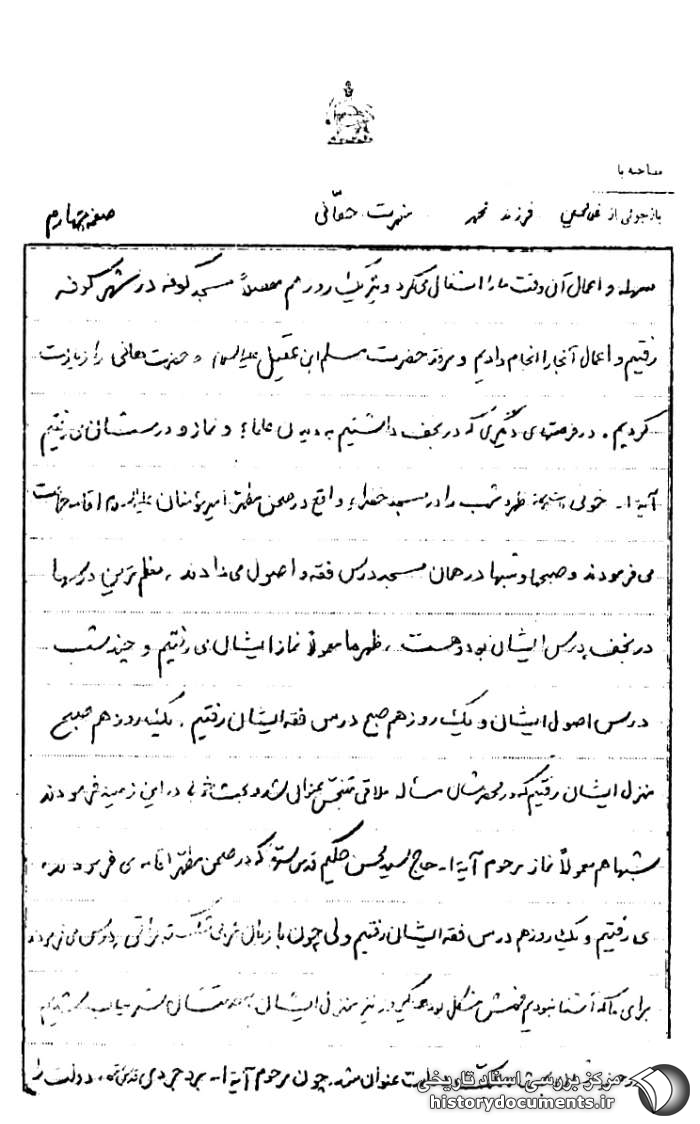 مصاحبه با
بازجوئی از غلامحسین فرزند محمد شهرت حقانی صفحه چهارم
سهله و اعمال آن وقت ما را اشغال میکرد و نیز یک روز هم مفصلاً مسجد کوفه در شهر کوفه
رفتیم و اعمال آنجا را انجام دادیم و مرقد حضرت مسلم ابن عقیل علیه‌السلام و حضرت هانی را زیارت
کردیم. در فرصتهای دیگری که در نجف داشتیم به دیدن علماء و نماز و درسشان می رفتیم
آیة ا... خوئی ظهر و شب را در مسجد خضراء واقع در صحن مطهر امیر مؤمنان علیه السلام اقامه جماعت
می فرمودند و صبحها و شبها در همان مسجد درس فقه و اصول می دادند، منظم ترین درسها
در نجف درس ایشان بود و هست، ظهرها معمولاً نماز ایشان می رفتیم و چند شب
درس اصول ایشان و یک روز هم صبح درس فقه ایشان رفتیم. یک روز هم صبح
منزل ایشان رفتیم که در محضرشان مسأله ملاقی متنجس عنوان شد و بحث خوبی در این زمینه فرمودند
شبها هم معمولاً نماز مرحوم آیة ا... حاج سید محسن حکیم قدس سره که در صحن مطهر اقامه می فرمودند
می رفتیم و یک روز هم درس فقه ایشان رفتیم ولی چون با زبان عربی درس می فرمودند
برای ما که آشنا نبودیم فهمش مشکل بود و یک روز نیز منزل ایشان به خدمتشان شرفیاب
عنوان شد. چون مرحوم آیة ا... بروجردی قدس سره دولت را
مرکز بررسی اسناد تاریخی
historydocuments.ir